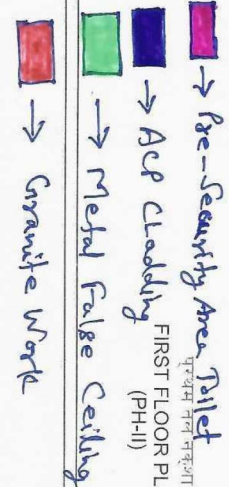 → Pre-Security Area Toilet
→ ACP Cladding
→ Metal False Ceiling
→ Granite Work
प्रथम तल नक्शा
FIRST FLOOR PL
(PH-II)